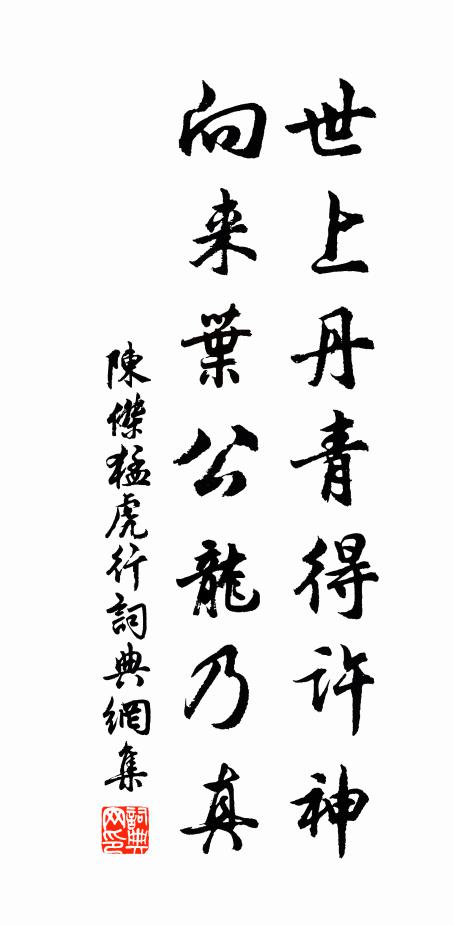 世上丹青得許神
向来葉公龍乃真
陳傑猛虎行詞典網集
詞典网印